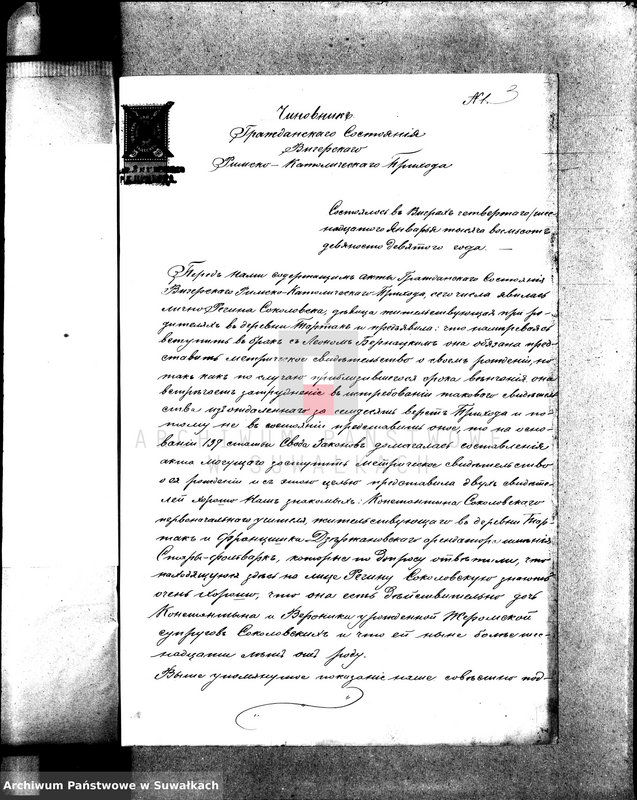 №1. 3
Чиновникъ
Гражданскаго Состоянія
Вигерскаго
Римско-Католическаго Прихода
Состоялось въ Виграхъ четвертаго/шес-
надцатого Января тысяча восемьсотъ
девяносто девятого года. —
Передъ нами содержащимъ акты Гражданскаго Состоянія
Вигерскаго Римско-Католическаго Прихода, сего числа явилась
лично Регина Соколовска, дѣвица жительствующая при ро-
дителяхъ въ деревни Тартакъ и предъявила: что намѣреваясь
вступить въ бракъ съ Леономъ Бернацкимъ она обязана пред-
ставить метрическое свидѣтельство о своемъ рожденіи, но
такъ какъ по случаю приблизившегося срока вѣнчанія она
встрѣчаетъ затрудненіе въ истребованіи таковаго свидѣтель-
ства изъ отдаленнаго за семдесятъ верстъ Прихода и по-
тому не въ состояніи представить оное, то на осно-
ваніи 139 статьи Свода Законовъ домогалась составленія
акта могущаго заступить метрическое свидѣтельство
о ея рожденіи и съ этою целью представила двухъ свидѣте-
лей хорошо намъ знакомыхъ: Константина Соколовскаго
первоначальнаго учителя, жительствующаго въ деревни Тар-
такъ и Францишка Дзержановскаго арендатора имѣнія
Стары-фольваркъ, которые по допросу отвѣтили, что
находящуюся здѣсь на лице Регину Соколовскую знаютъ
очень хорошо, что она есть дѣйствительно дочь
Константина и Вероники урожденной Жеромской
супруговъ Соколовскихъ и что ей ныне болѣе шес-
надцати лѣтъ отъ роду.
Выше упомянутое показаніе наше совѣстно под-
ARCHIWUM PAŃSTWOWE
W SUWAŁKACH
Archiwum Państwowe w Suwałkach